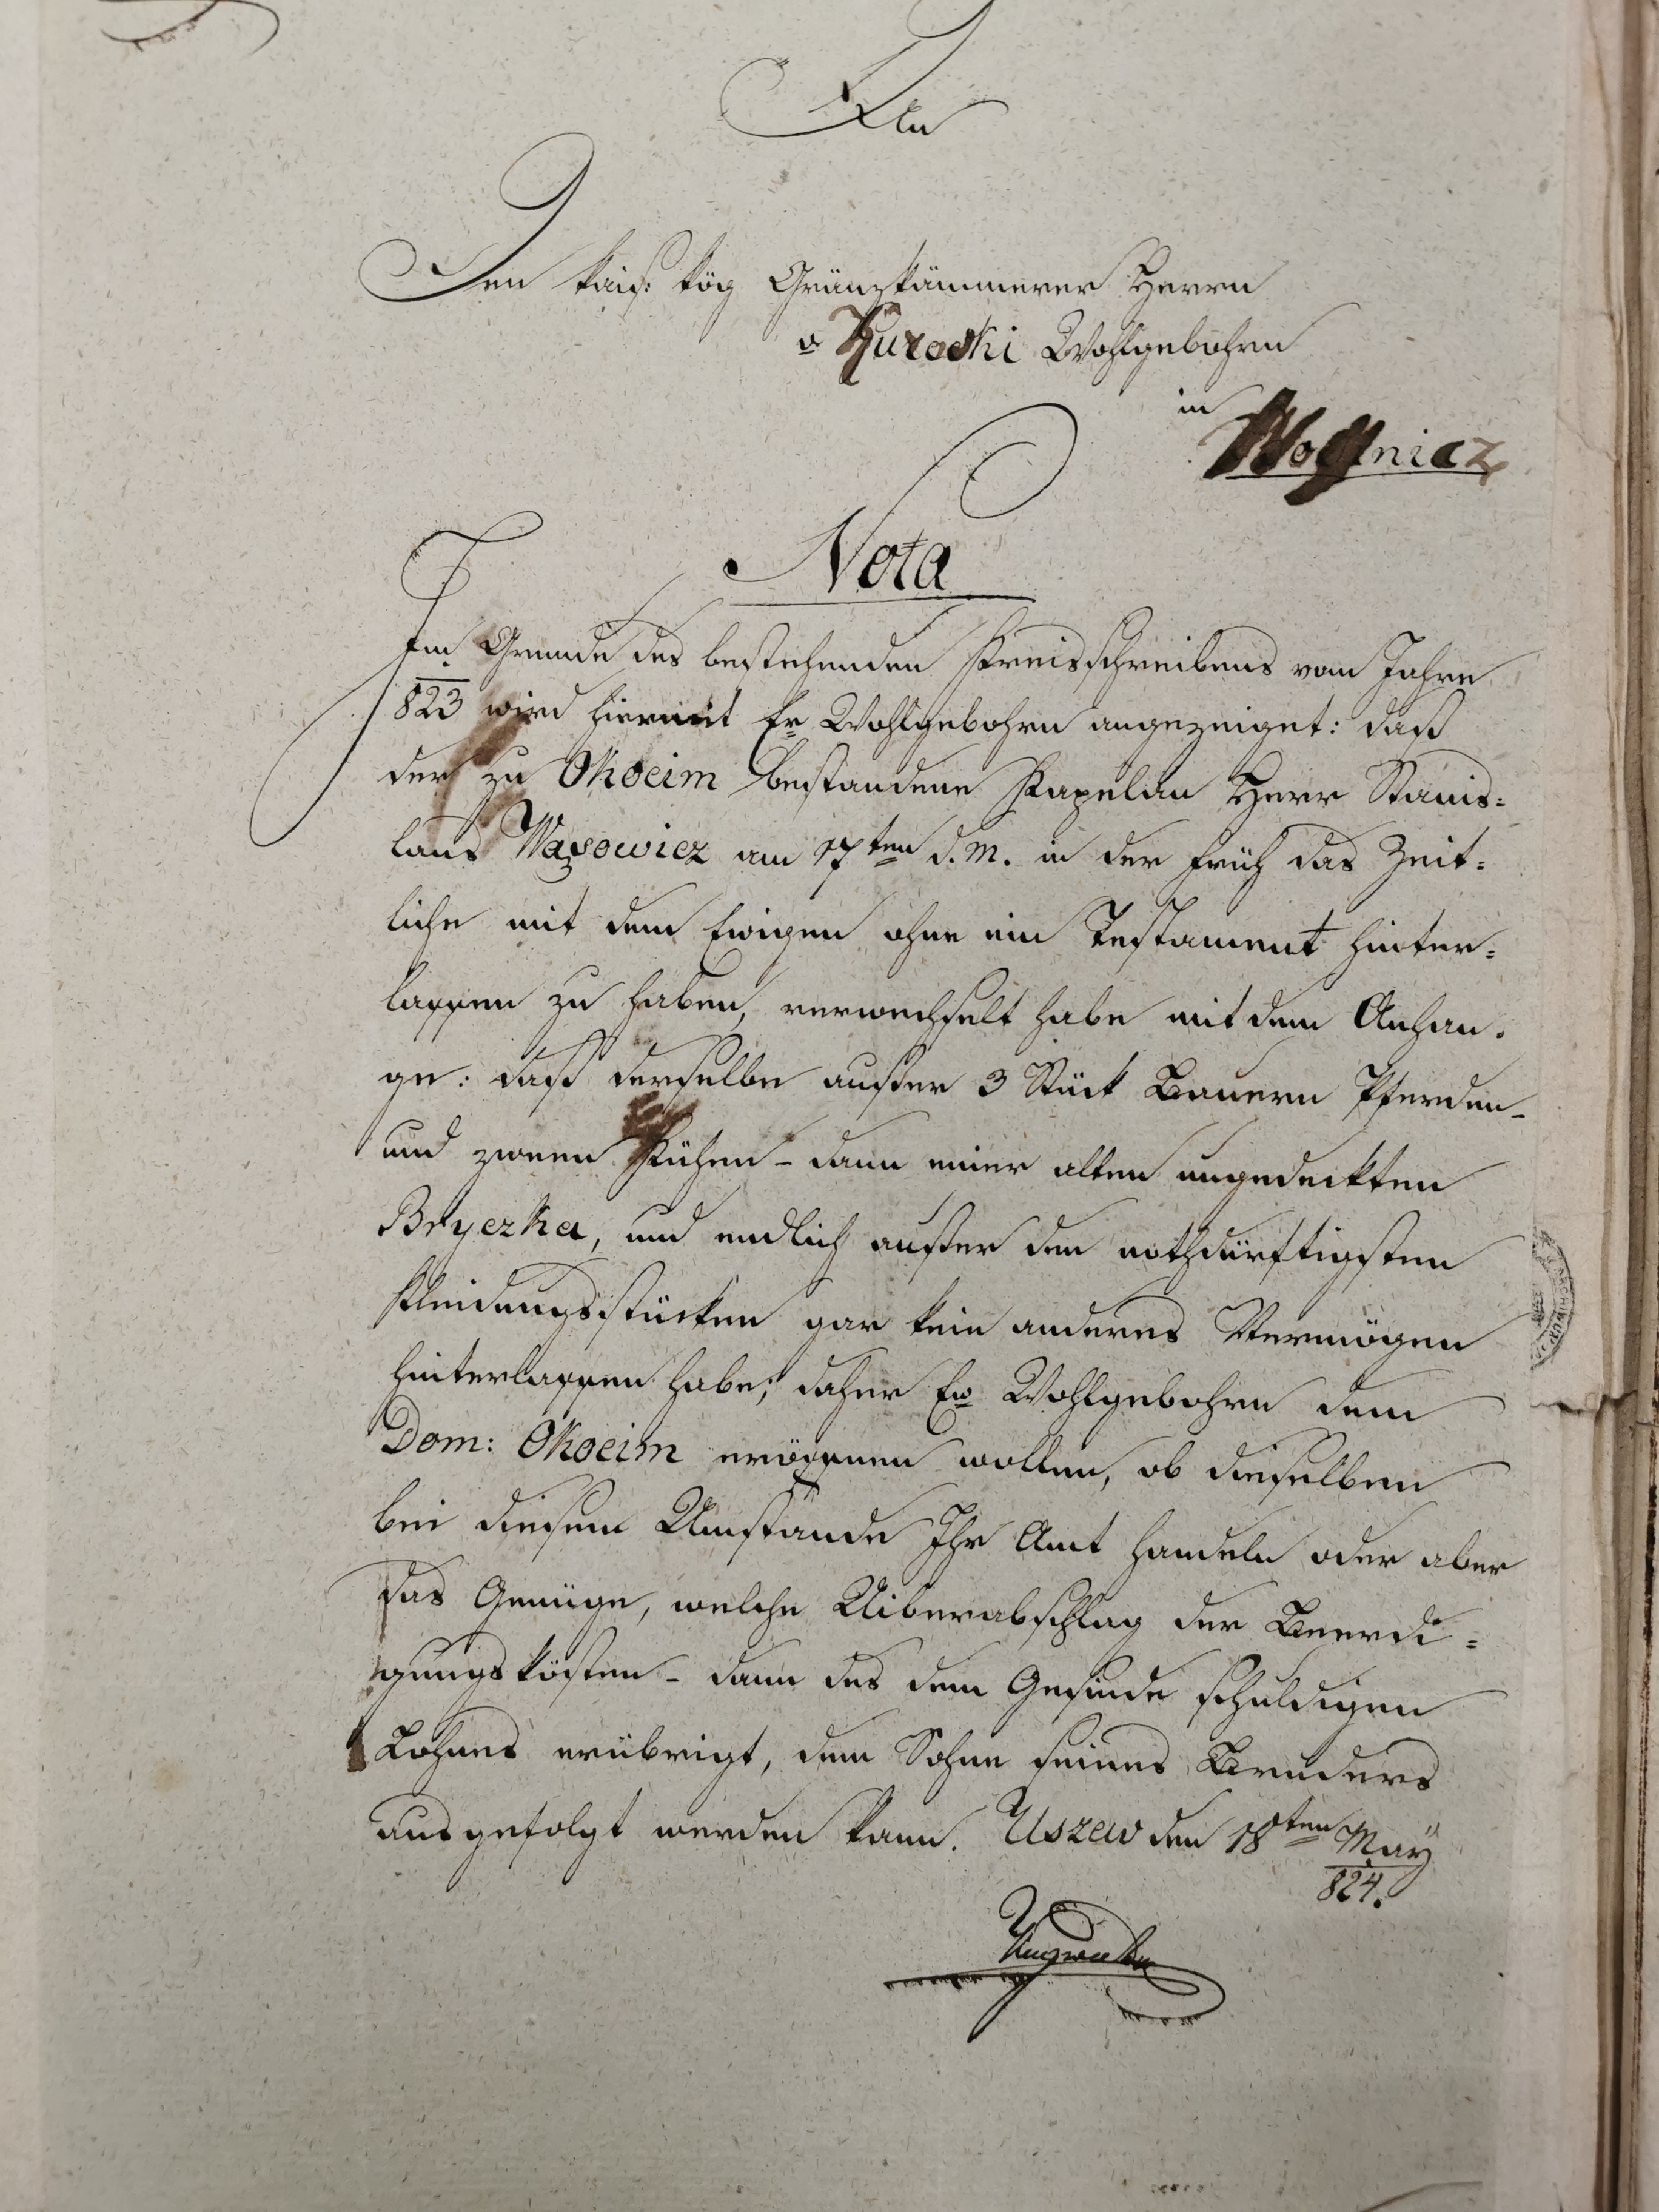 An
Den kais: kög Gränzkämmerer Herrn
v Kuroski Wohlgebohrn
in
Woynicz
Nota
Im Grunde des bestehenden Kreisschreibens vom Jahre
823 wird hiermit Er Wohlgebohrn angezeiget: daß
der zu Okocim bestandene Kapelan Herr Stanis=
laus Wąsowicz am 17ten d. M. in der Früh das Zeit=
liche mit dem Ewigen ohne ein Testament hinter=
lassen zu haben, verwechselt habe mit dem Anhan.
ge: daß derselbe ausser 3 Stück Bauern Pferden -
und zween Kühen - dann einer alten ungedeckten
Bryczka, und endlich ausser den nothdürftigsten
Kleidungsstücken gar kein anderes Vermögen
hinterlassen habe; daher Ew Wohlgebohrn dem
Dom: Okocim eröffnen wollen, ob dieselben
bei diesem Umstände Ihr Amt handeln oder aber
das Genüge, welche Uiberabschlag der Beerdi=
gungskösten - dann des dem Gesinde schuldigen
Lohnes erübrigt, dem Sohne seines Bruders
ausgefolgt werden kann. Uszew den 18ten May
824.